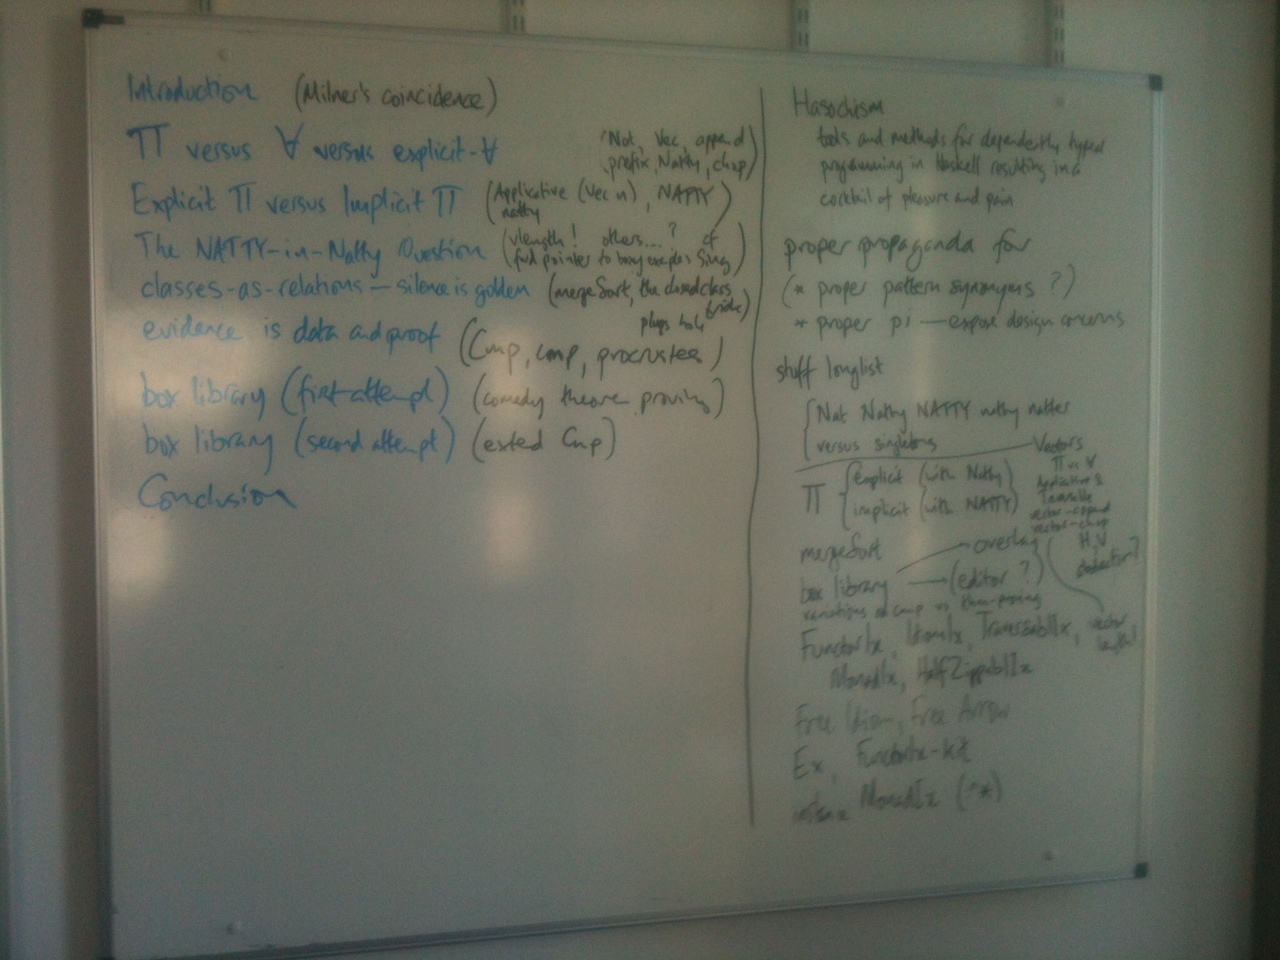 Introduction (Milner's coincidence)
Π versus ∀ versus explicit-∀ (Nat, Vec, append
prefix, Natty, chop)
Explicit Π versus Implicit Π (Applicative (Vec n), NATTY)
natty
The NATTY-in-Natty Question (vlength! others...? cf
fwd pointer to boxy examples Sing)
classes-as-relations — silence is golden (mergeSort, the closed class
trick)
plugs hole
evidence is data and proof (Cmp, cmp, procrustes)
box library (first attempt) (comedy theorem proving)
box library (second attempt) (exted Cmp)
Conclusion
Hasochism
tools and methods for dependently typed
programming in Haskell resulting in a
cocktail of pleasure and pain
proper propaganda for
(* proper pattern synonyms ?)
* proper pi — expose design concerns
stuff longlist
Nat Natty NATTY natty natter
versus singletons
Vectors
Π vs ∀
Applicative &
Traversable
vector-append
vector-chop
H,V
Π { explicit (with Natty)
implicit (with NATTY)
mergeSort
overlay
box library → (editor ?)
variations of cmp vs thm-proving
FunctorIx, IdiomIx, TraversableIx, vector
length!
MonadIx, HalfZippableIx
Free Idiom, Free Arrow
Ex, FunctorIx-kit
MonadIx (:*)